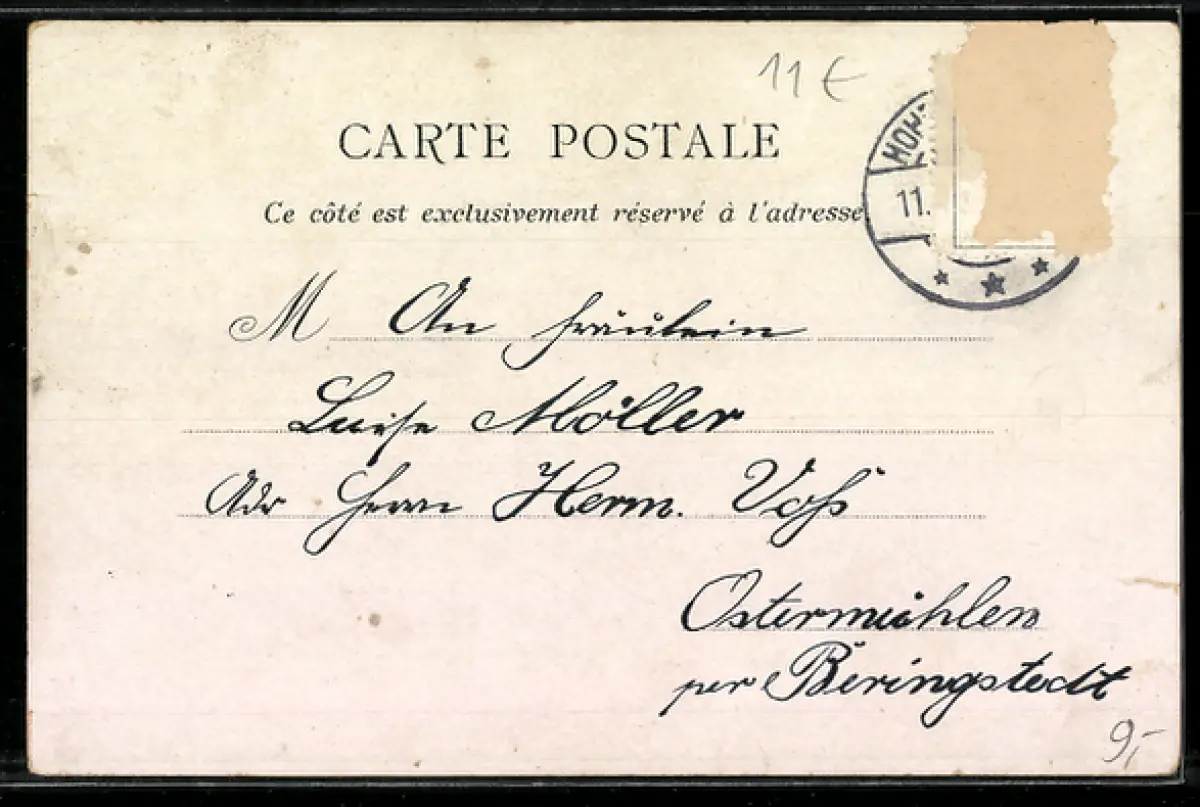 11 €
CARTE POSTALE
Ce côté est exclusivement réservé à l'adresse
11.
M An Fräulein
Luise Möller
Adr Herrn Herm. Voß
Ostermühlen
per Beringstedt
9,-